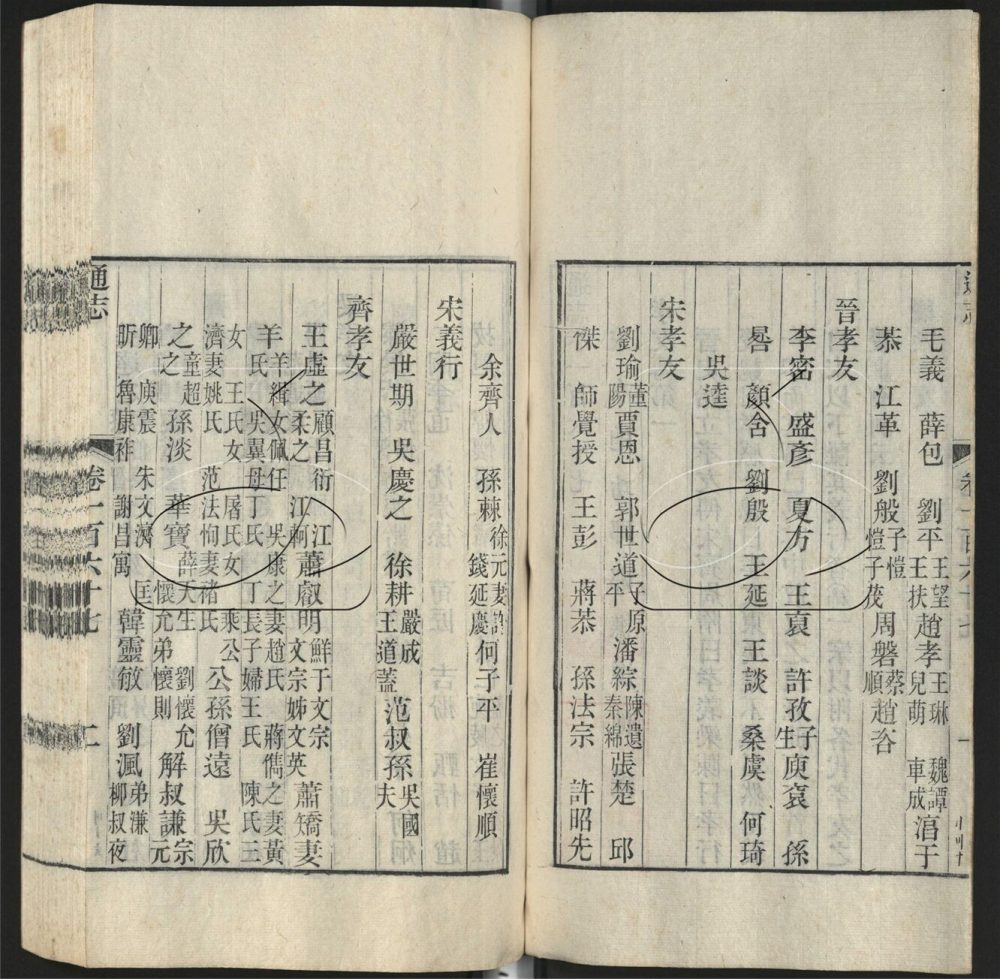 毛義 薛包 劉平王望王扶趙孝王琳兒萌 魏譚車成淳于
恭 江革 劉般子愷愷子茂周磐蔡順趙咨
晉孝友
李密 盛彥 夏方 王裒 許孜子生庾袞 孫
晷 顏含 劉殷 王延 王談 桑虞 何琦
吳逵
宋孝友
劉瑜董陽賈恩 郭世道子原平潘綜陳遺秦綿張楚 邱
傑 師覺授 王彭 蔣恭 孫法宗 許昭先
余齊人 孫棘徐元妻許錢延慶何子平 崔懷順
宋義行
嚴世期 吳慶之 徐耕嚴成王道蓋范叔孫吳國夫
齊孝友
王虛之顧昌衍江柔之江軻蕭叡明鮮于文宗文宗姊文英蕭矯妻
羊羊緝女佩任吳康之妻趙氏蔣儁之妻黃
氏吳翼母丁氏丁長子婦王氏陳氏三
女王氏女屠氏女乘公
濟妻姚氏范法恂妻褚氏公孫僧遠 吳欣
之童超之孫淡 華寶薛天生劉懷允懷允弟懷則解叔謙宗元
卿庾震朱文濟匡昕魯康祚謝昌寓韓靈敏 劉渢弟謙柳叔夜
通志 卷一百六十七 二